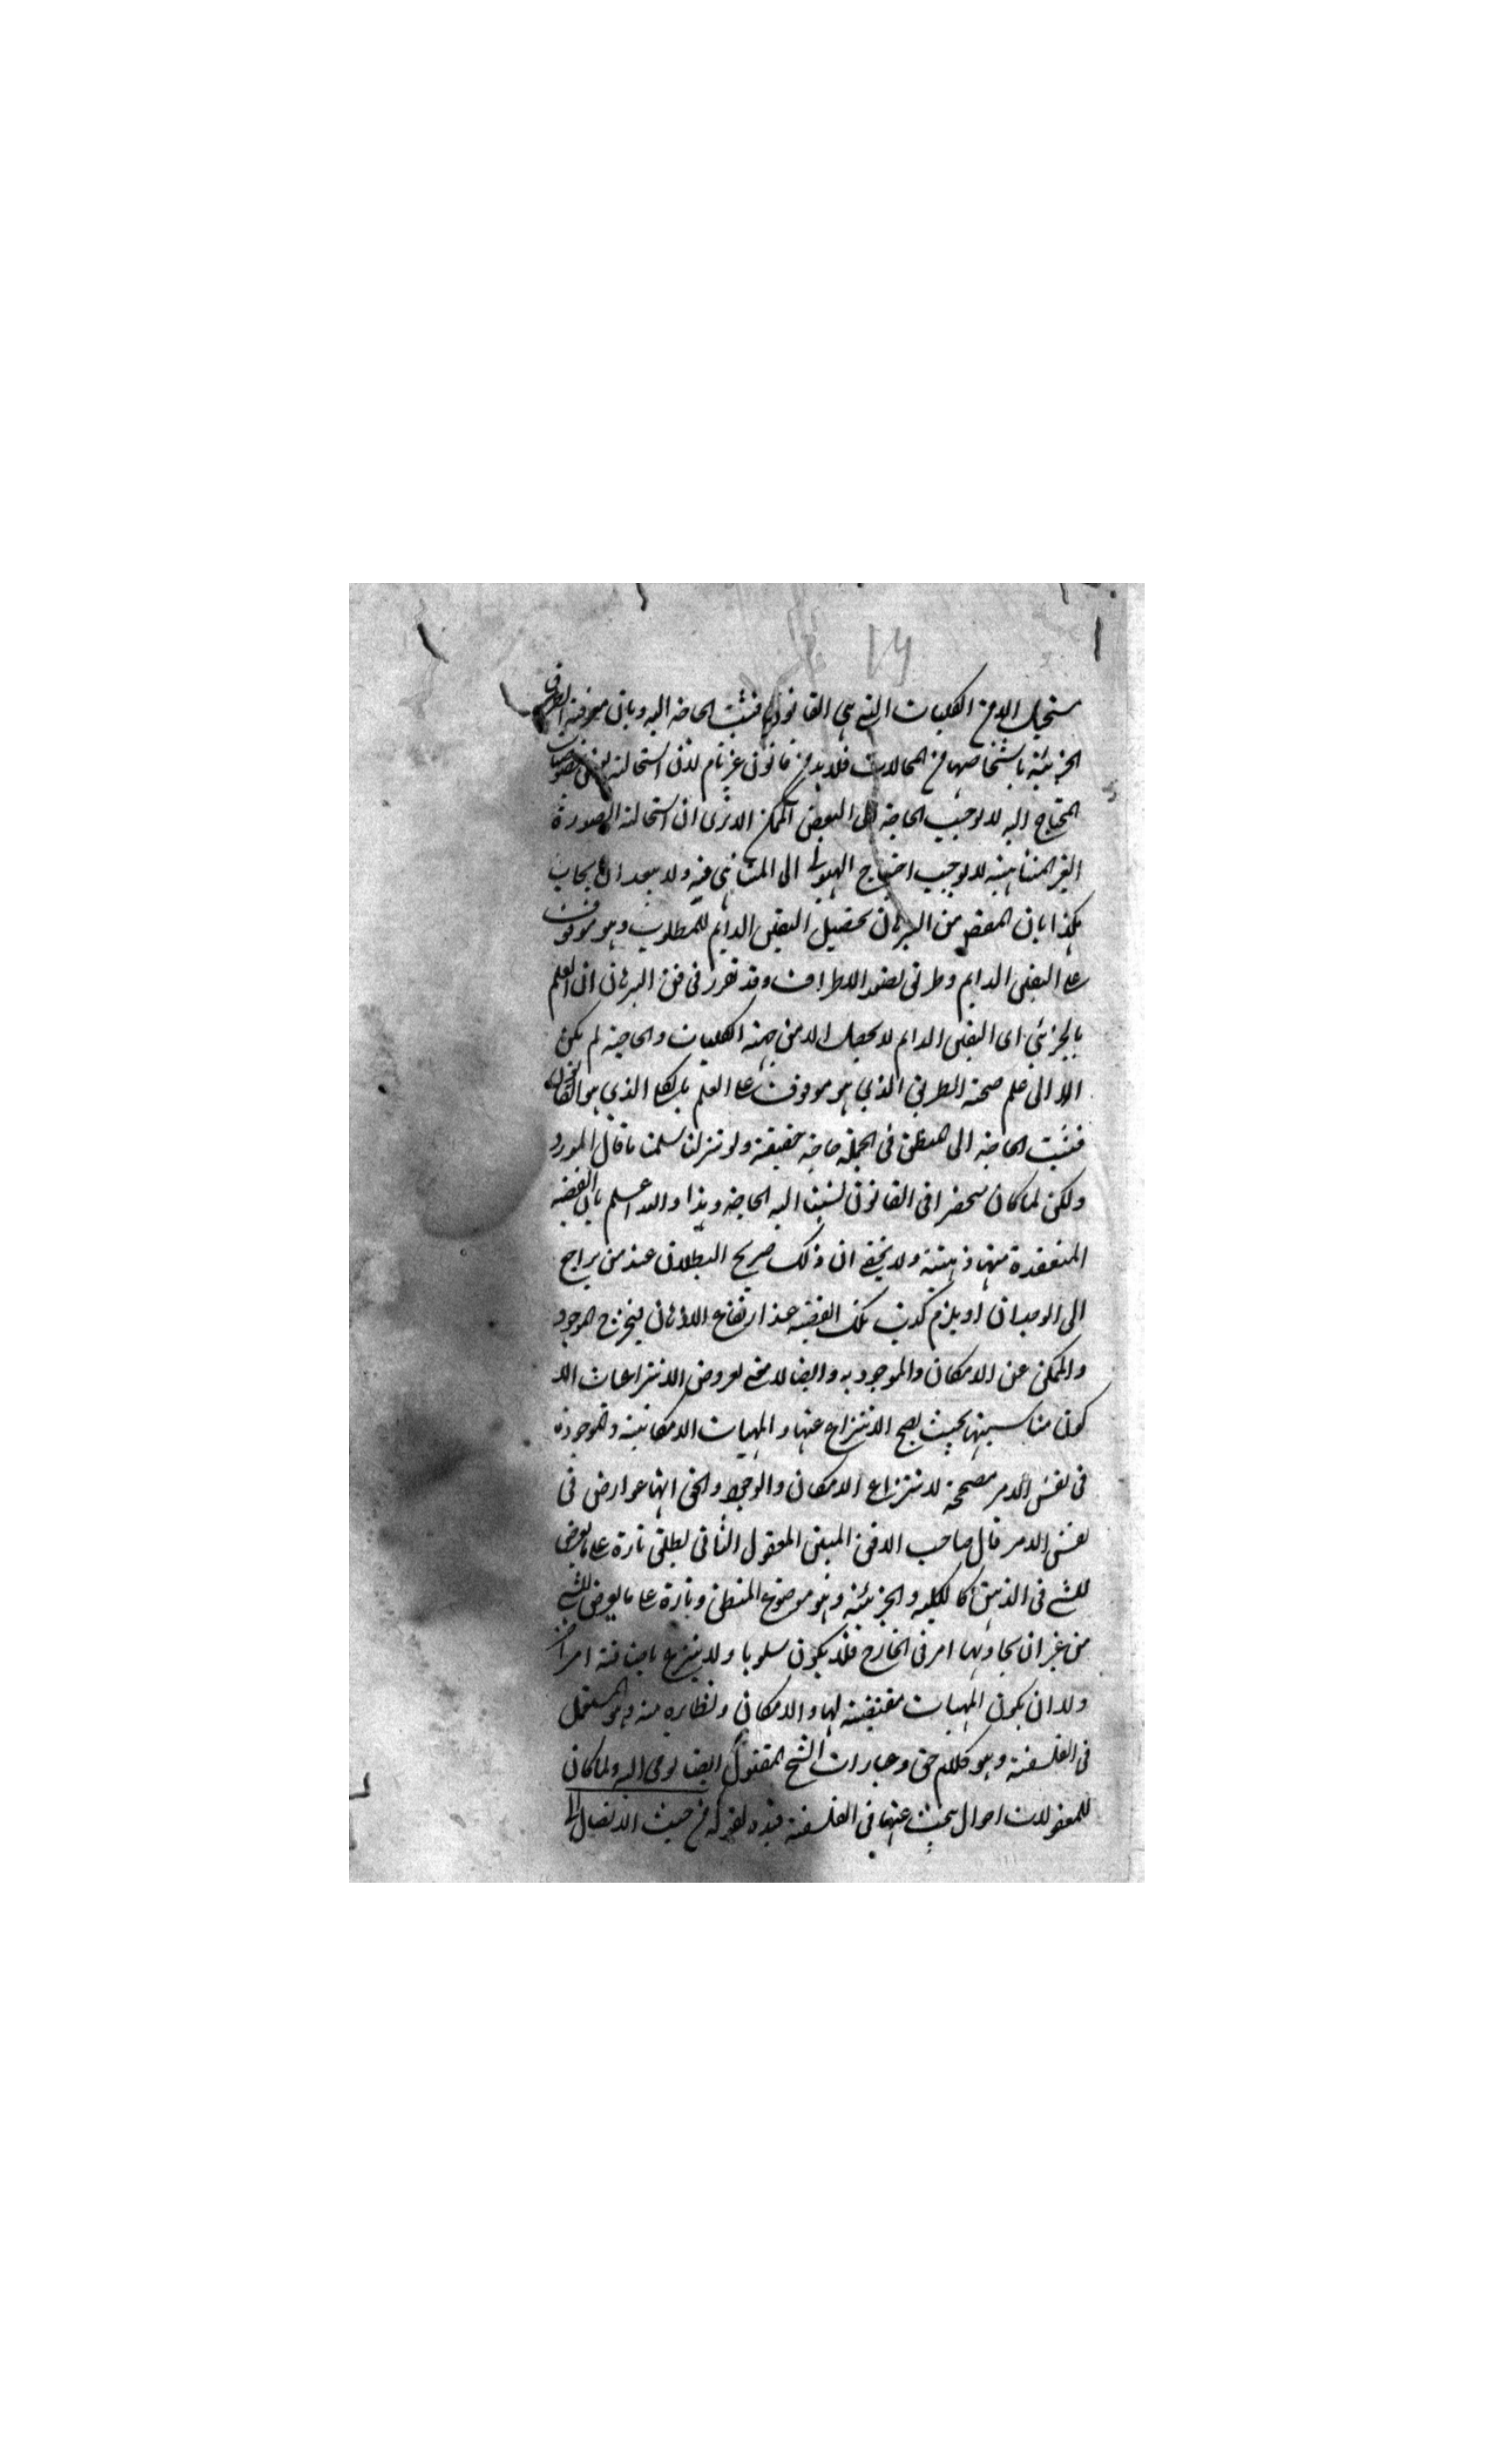 ١٦
يستحيل الا من الكليات التي هي القانون فثبت الحاجة اليه وبان معرفة الطرق
الجزئية باشخاصها من المحالات فلا بد من قانون غير تام لان استحالة بعض
المحتاج اليه لا يوجب الحاجة الى البعض الممكن الا ترى ان استحالة الصورة
الغير المتناهية لا يوجب احتياج الهيولى الى المتناهي فيه ولا يبعد ان يجاب
هكذا بان الغرض من البرهان تحصيل اليقين الدائم للمطلوب وهو موقوف
على اليقين الدايم وطرق لعقد الاطراف وقد تقرر في فن البرهان ان العلم
بالجزئي اي اليقين الدايم لا يحصل الا من جهة الكليات والحاجة لم يكن
الا الى علم صحة الطرق الذي هو موقوف على العلم بالكلي الذي هو القانون
فثبت الحاجة الى المنطق في الجملة حاجة حقيقة ولو تنزلنا سلمنا ما قال المورد
ولكن لما كان منحصرا في القانون نسبنا اليه الحاجة وهذا والله اعلم بان القضية
المنعقدة منها ذهنية ولا يخفى ان ذلك صريح البطلان عند من يراجع
الى الوجدان او يلزم كذب تلك القضية عند ارتفاع الاذهان فيخرج الموجود
والممكن عن الامكان والموجودية وايضا لا معنى لعروض الانتزاعات الا
كون مناسبتها بحيث يصح الانتزاع عنها والمهيات الامكانية والموجودة
في نفس الامر مصححة لانتزاع الامكان والوجود والحق انها عوارض في
نفس الامر قال صاحب الافق المبين المعقول الثاني يطلق تارة على ما يعرض
للشي في الذهن كالكلية والجزئية وهو موضوع المنطق وتارة على ما يعرض للشي
من غير ان يحاذيها امر في الخارج فلا يكون سلوبا ولا ينتزع باضافة امر اخر
ولا ان يكون المهيات مقتضية لها والامكان ونظايره منه وهو المستعمل
في الفلسفة وهو كلام حق وعبارات الشيخ المقتول ايضا يومى اليه ولما كان
للمعقولات احوال يبحث عنها في الفلسفة قيده بقوله من حيث الايصال الى